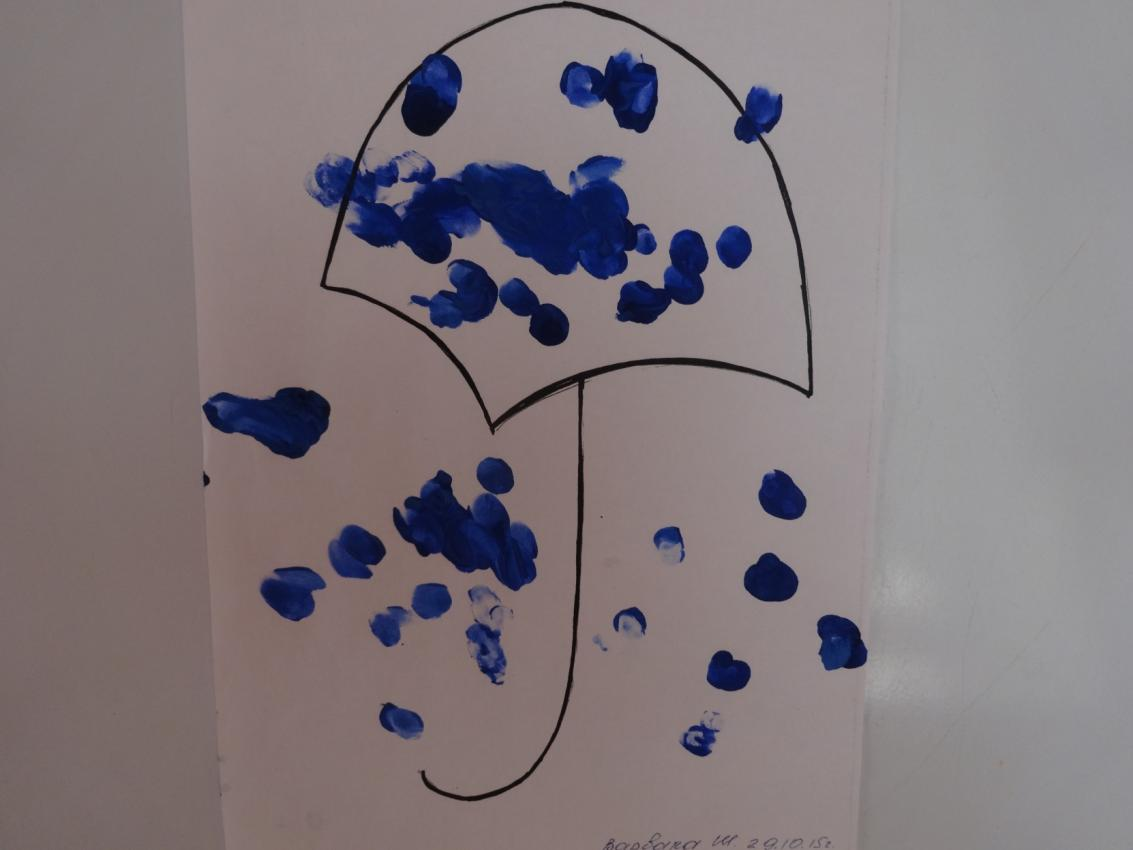 Варвара Ш. 29.10.15г.